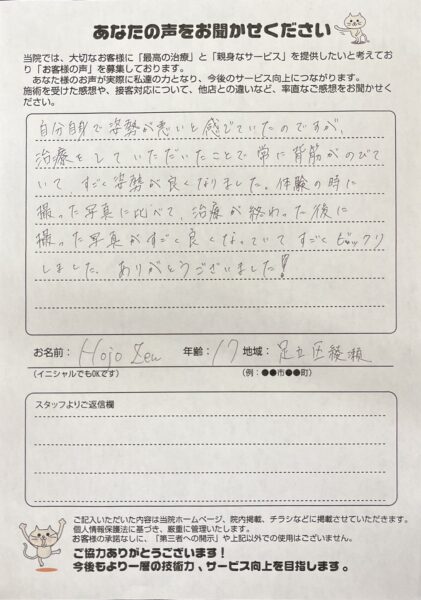 あなたの声をお聞かせください
当院では、大切なお客様に「最高の治療」と「親身なサービス」を提供したいと考えてお
り「お客様の声」を募集しております。
あなたのお声が実際に私達の力となり、今後のサービス向上につながります。
施術を受けた感想や、接客対応について、他店との違いなど、率直なご感想をお聞かせく
ださい。
自分自身で姿勢が悪いと感じていたのですが、
治療をしていただいたことで常に背筋がのびて
いて すごく姿勢が良くなりました。体験の時に
撮った写真に比べて、治療が終わった後に
撮った写真がすごく良くなっていてすごくビックリ
しました。ありがとうございました!
お名前： Hojo Zen 年齢： 17 地域： 足立区綾瀬
（イニシャルでもOKです） （例：●●市●●町）
スタッフよりご返信欄
ご記入いただいた内容は当院ホームページ、院内掲載、チラシなどに掲載させていただきます。
個人情報保護法に基づき、厳重に管理いたします。
お客様の承諾なしに、「第三者への開示」や上記以外での使用はございません。
ご協力ありがとうございます！
今後もより一層の技術力、サービス向上を目指します。